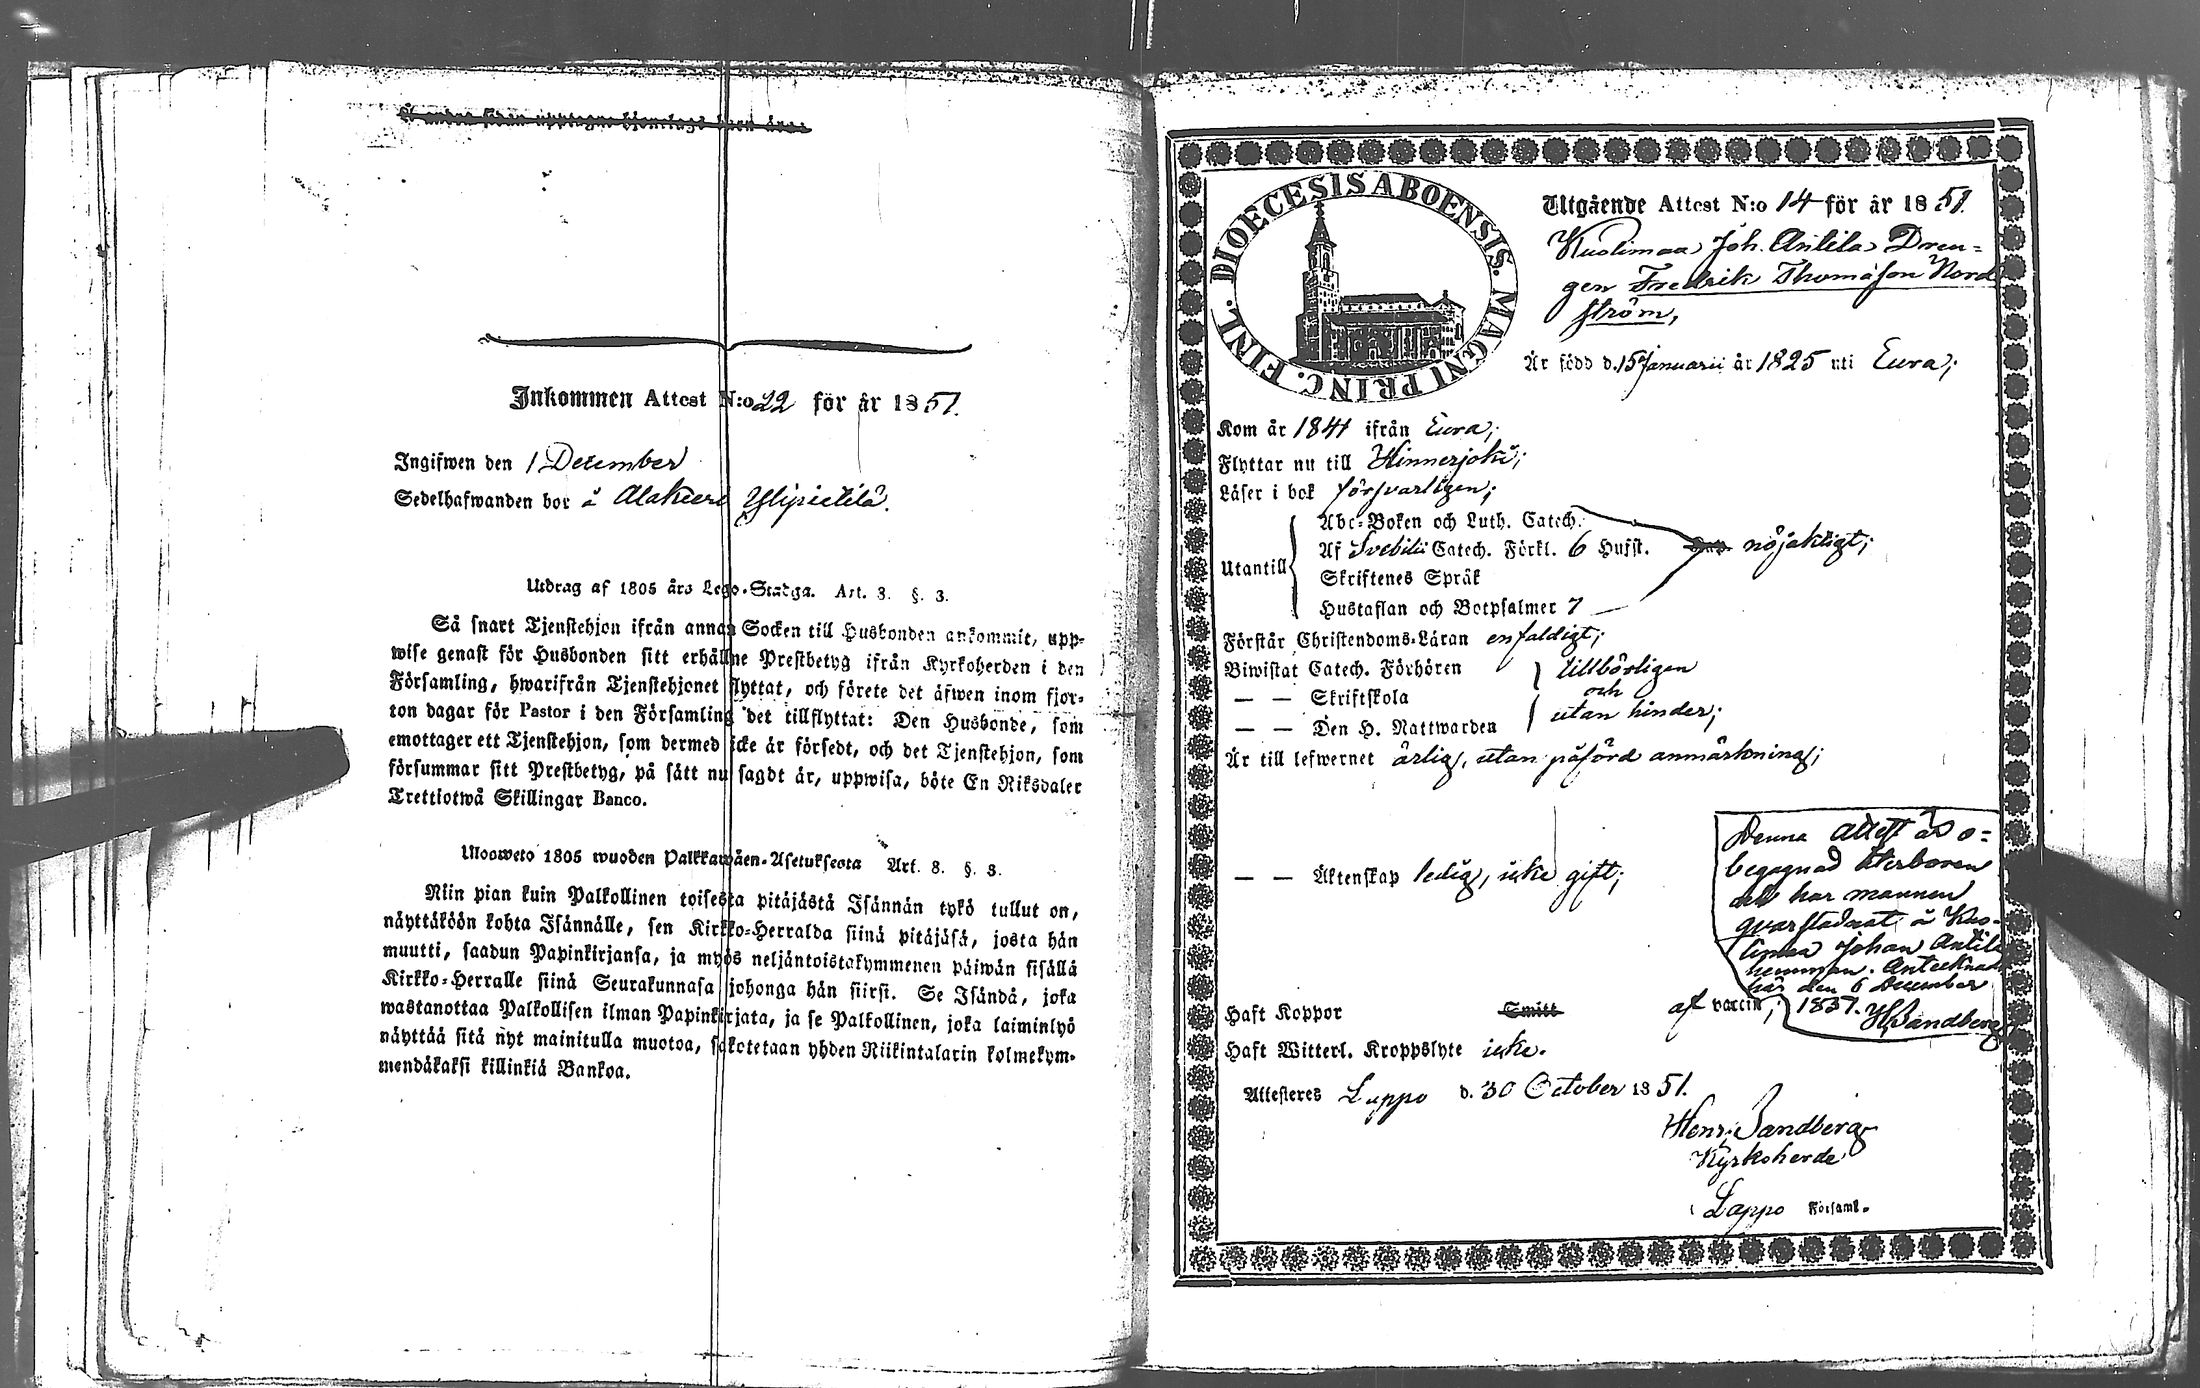 Inkommen Attest N:o 22 för år 1851.
Ingifwen den 1 December
Sedelhafwanden bor å Alakieri Ylipietilä.
Utdrag af 1805 års Lego-Stadga. Art. 3. §. 3.
Så snart Tjenstehjon ifrån annan Socken till Husbonden ankommit, upp-
wise genast för Husbonden sitt erhållne Prestbetyg ifrån Kyrkoherden i den
Församling, hwarifrån Tjenstehjonet flyttat, och förete det äfwen inom fjor-
ton dagar för Pastor i den Församling det tillflyttat: Den Husbonde, som
emottager ett Tjenstehjon, som dermed icke är försedt, och det Tjenstehjon, som
försummar sitt Prestbetyg, på sätt nu sagdt är, uppwisa, böte En Riksdaler
Trettiotwå Skillingar Banco.
Uloosweto 1805 wuoden Palkkawäen-Asetuksesta Art. 3. §. 3.
Niin pian kuin Palkollinen toisesta pitäjästä Isännän tykö tullut on,
näyttäköön kohta Isännälle, sen Kirkko-Herralda siinä pitäjäsä, josta hän
muutti, saadun Papinkirjansa, ja myös neljäntoistakymmenen päiwän sisällä
Kirkko-Herralle siinä Seurakunnasa johonga hän siirsi. Se Isändä, joka
wastanottaa Palkollisen ilman Papinkirjata, ja se Palkollinen, joka laiminlyö
näyttää sitä nyt mainitulla muotoa, sakotetaan yhden Riikintalarin kolmekym-
mendäkaksi killinkiä Bankoa.
DIOECESIS ABOENSIS. MAGNI PRINC. FINL.
Utgående Attest N:o 14 för år 1851.
Kuolimaa Joh. Antila Dren-
gen Fredrik Thomasson Nord
ström,
Är född d. 15 Januarii år 1825 uti Eura;
Kom år 1841 ifrån Eura;
Flyttar nu till Hinnerjoki;
Läser i bok försvarligen;
Abc-Boken och Luth. Catech.
Utantill Af Svebilii Catech. Förkl. 6 Hufst. nöjaktigt;
Skriftenes Språk
Hustaflan och Botpsalmer 7 —
Förstår Christendoms-Läran enfaldigt;
Biwistat Catech. Förhören tillbörligen
— — Skriftskola och
— — Den H. Nattwarden utan hinder;
Är till lefwernet ärlig, utan påförd anmärkning;
— — Äktenskap ledig, icke gift;
Denna attest är o-
begagnad återburen
då har mannen
qvarstadnat å Kuo-
limaa Johan Antila
hemman. Antecknad
här den 6 December
1851. HSandberg
Haft Koppor Smitt af vaccin;
Haft Witterl. Kroppslyte icke.
Attesteres Lappo d. 30 October 1851.
Henr. Sandberg
Kyrkoherde
Lappo Församl.